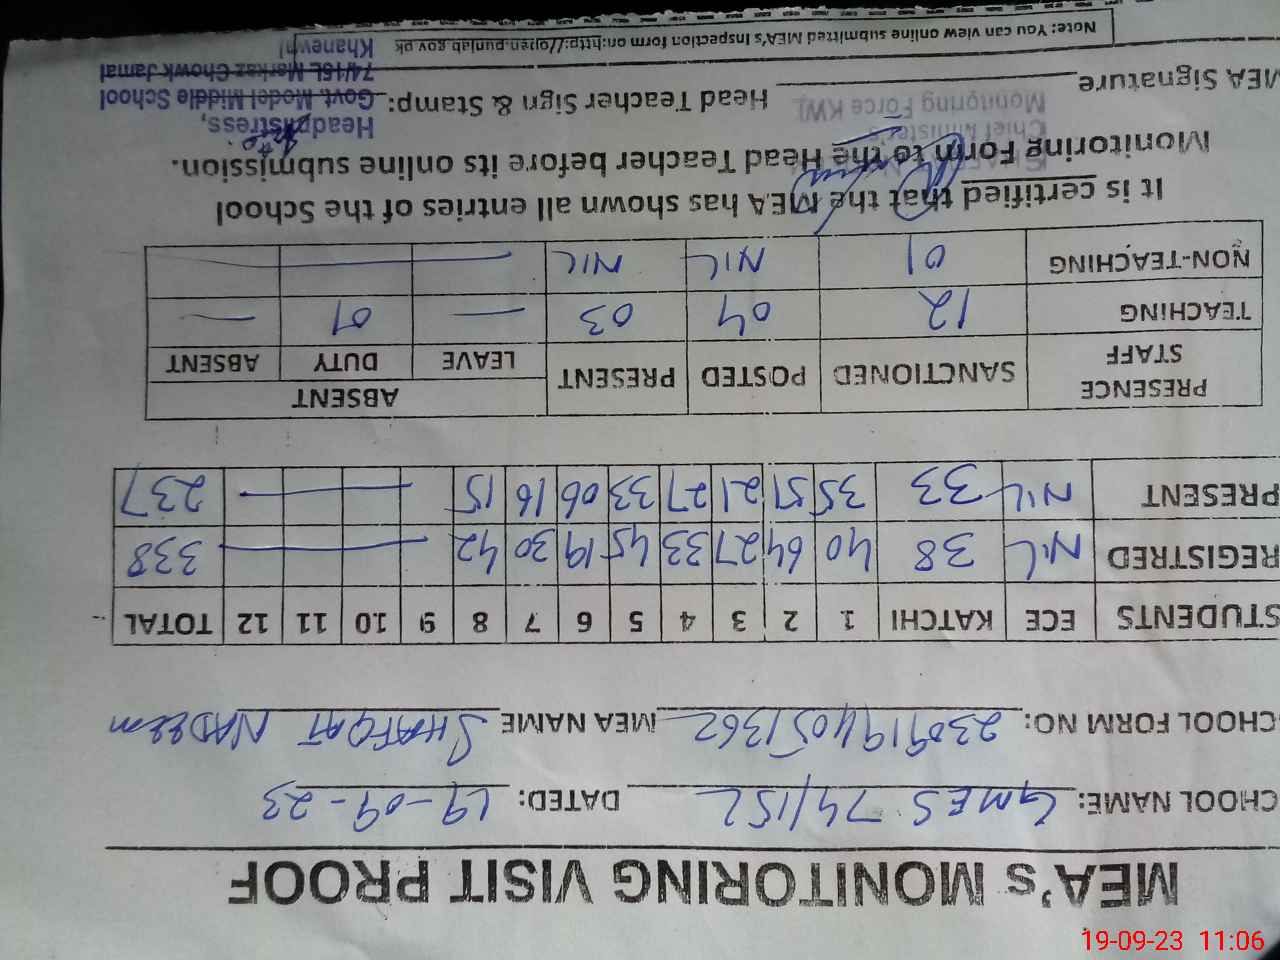 MEA's MONITORING VISIT PROOF
CHOOL NAME: GMES 74/15L DATED: 19-09-23
CHOOL FORM NO: 2309194051362 MEA NAME SHAFQAT NADEEM
STUDENTS ECE KATCHI 1 2 3 4 5 6 7 8 9 10 11 12 TOTAL
REGISTRED NIL 38 40 64 27 33 45 19 30 42 — 338
PRESENT NIL 33 35 51 21 27 33 06 16 15 — 237
PRESENCE STAFF SANCTIONED POSTED PRESENT ABSENT
LEAVE DUTY ABSENT
TEACHING 12 04 03 — 01 —
NON-TEACHING 01 NIL NIL —
It is certified that the MEA has shown all entries of the School
Monitoring Form to the Head Teacher before its online submission.
Chief Minister's
Monitoring Force KWL
MEA Signature Head Teacher Sign & Stamp:
Headmistress,
Govt. Model Middle School
74/15L Markaz Chowk Jamal
Khanewal
Note: You can view online submitted MEA's Inspection form on:http://open.punjab.gov.pk
19-09-23 11:06